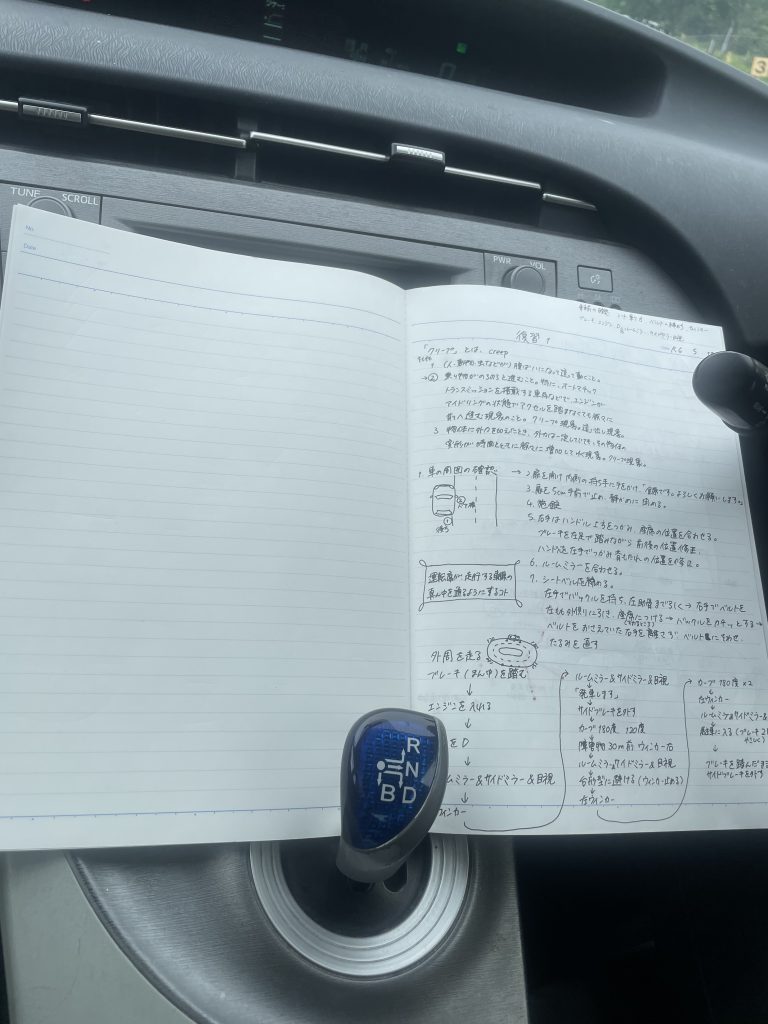 TUNE
SCROLL
PWR
VOL
3
No.
Date
復習 1
「クリープ」とは、creep
1 (人・動物・虫などが) 腹ばいになって這って動くこと。
→② 乗り物がのろのろと進むこと。特に、オートマチック
トランスミッションを搭載する車両などで、エンジンが
アイドリングの状態でアクセルを踏まなくても徐々に
前へ進む現象のこと。クリープ現象。這い出し現象。
3 物体に外力を加えたとき、外力は一定していても、その物体の
変形が時間とともに徐々に増加してゆく現象。クリープ現象。
1. 車の周囲の確認
→ 2 扉を開け内側の持ち手に手をかけ、「全部です。よろしくお願いします。」
3. 扉を5cm手前で止め、静かに閉める。
4. 施錠
5. 右手はハンドル上方をつかみ、座席の位置を合わせる。
ブレーキを左足で踏みながら前後の位置修正。
ハンドルを左手でつかみ背もたれの位置を修正。
6. ルームミラーを合わせる。
7. シートベルトを締める。
左手でバックルを持ち、
右手でベルトを
ベルトをおさえていた右手を離さず ベルト
たるみを直す
運転席が走行する車線の
真ん中を通るようにするコト
外周を走る
ブレーキ (まん中) を踏む
↓
エンジンを入れる
↓
をD
↓
ームミラー&サイドミラー&目視
↓
ウィンカー
ルームミラー&サイドミラー&目視
↓
「発車します」
↓
サイドブレーキを外す
↓
カーブ 180度 120度
↓
障害物 30m前 ウィンカー右
↓
ルームミラー&サイドミラー&目視
↓
右に避ける (ウィンカー止める)
↓
左ウィンカー
カーブ 180度×2
↓
左ウィンカー
↓
ルームミラー&サイドミラー&
↓
駐車に入る (ブレーキ2
やさしく)
↓
ブレーキを踏んだまま
サイドブレーキを
R
N
B
D